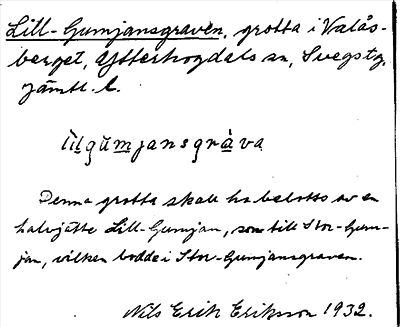 Lill-Gumjansgraven, grotta i Valås-
berget, Ytterhogdals sn, Svegs tg,
Jämtl. l.
lìlgŭmjansgràva
Denna grotta skall ha bebotts av en
halvjätte Lill-Gumjan, son till Stor-Gum-
jan, vilken bodde i Stor-Gumjansgraven.
Nils Erik Eriksson 1932.